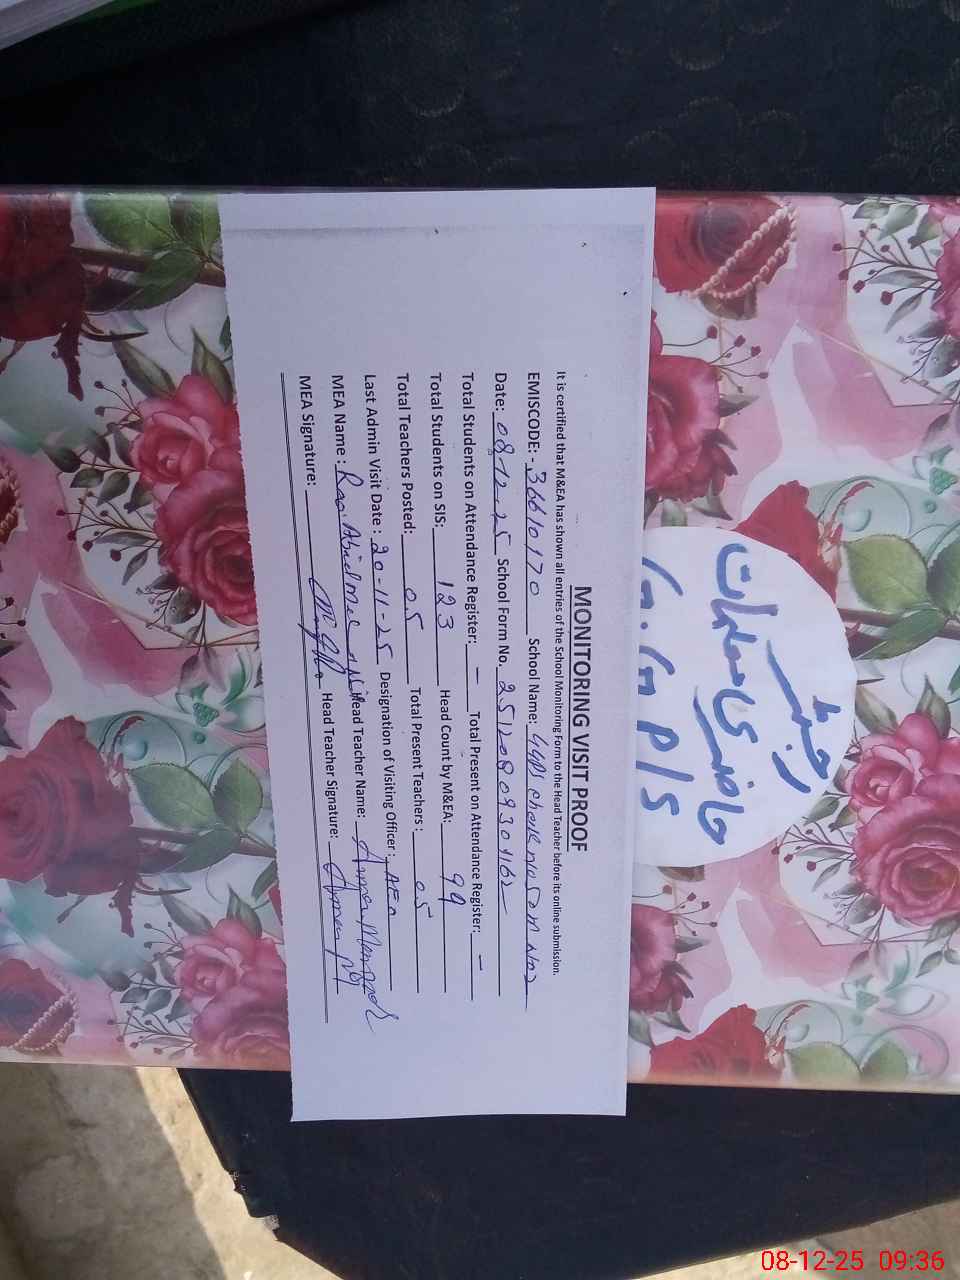 MONITORING VISIT PROOF
It is certified that M&EA has shown all entries of the School Monitoring Form to the Head Teacher before its online submission.
EMISCODE:- 36610170 School Name:
Date: 08-12-25 School Form No. 25120809301162
Total Students on Attendance Register: - Total Present on Attendance Register: -
Total Students on SIS: 123 Head Count by M&EA: 99
Total Teachers Posted: 05 Total Present Teachers: 05
Last Admin Visit Date: 20-11-25 Designation of Visiting Officer: AEO
MEA Name: Head Teacher Name:
MEA Signature: Head Teacher Signature:
رجسٹر
حاضری معلمات
G.G P/S
08-12-25 09:36